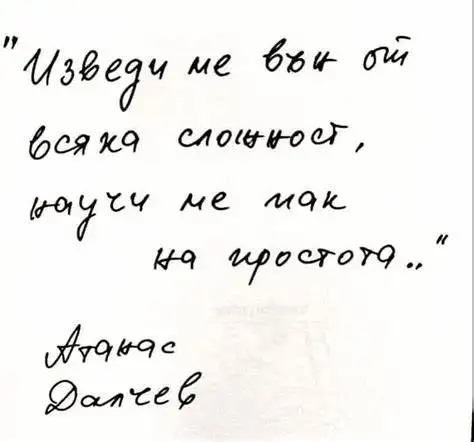 "Изведи ме вън от
всяка сложност,
научи ме пак
на простота.."
Атанас
Далчев